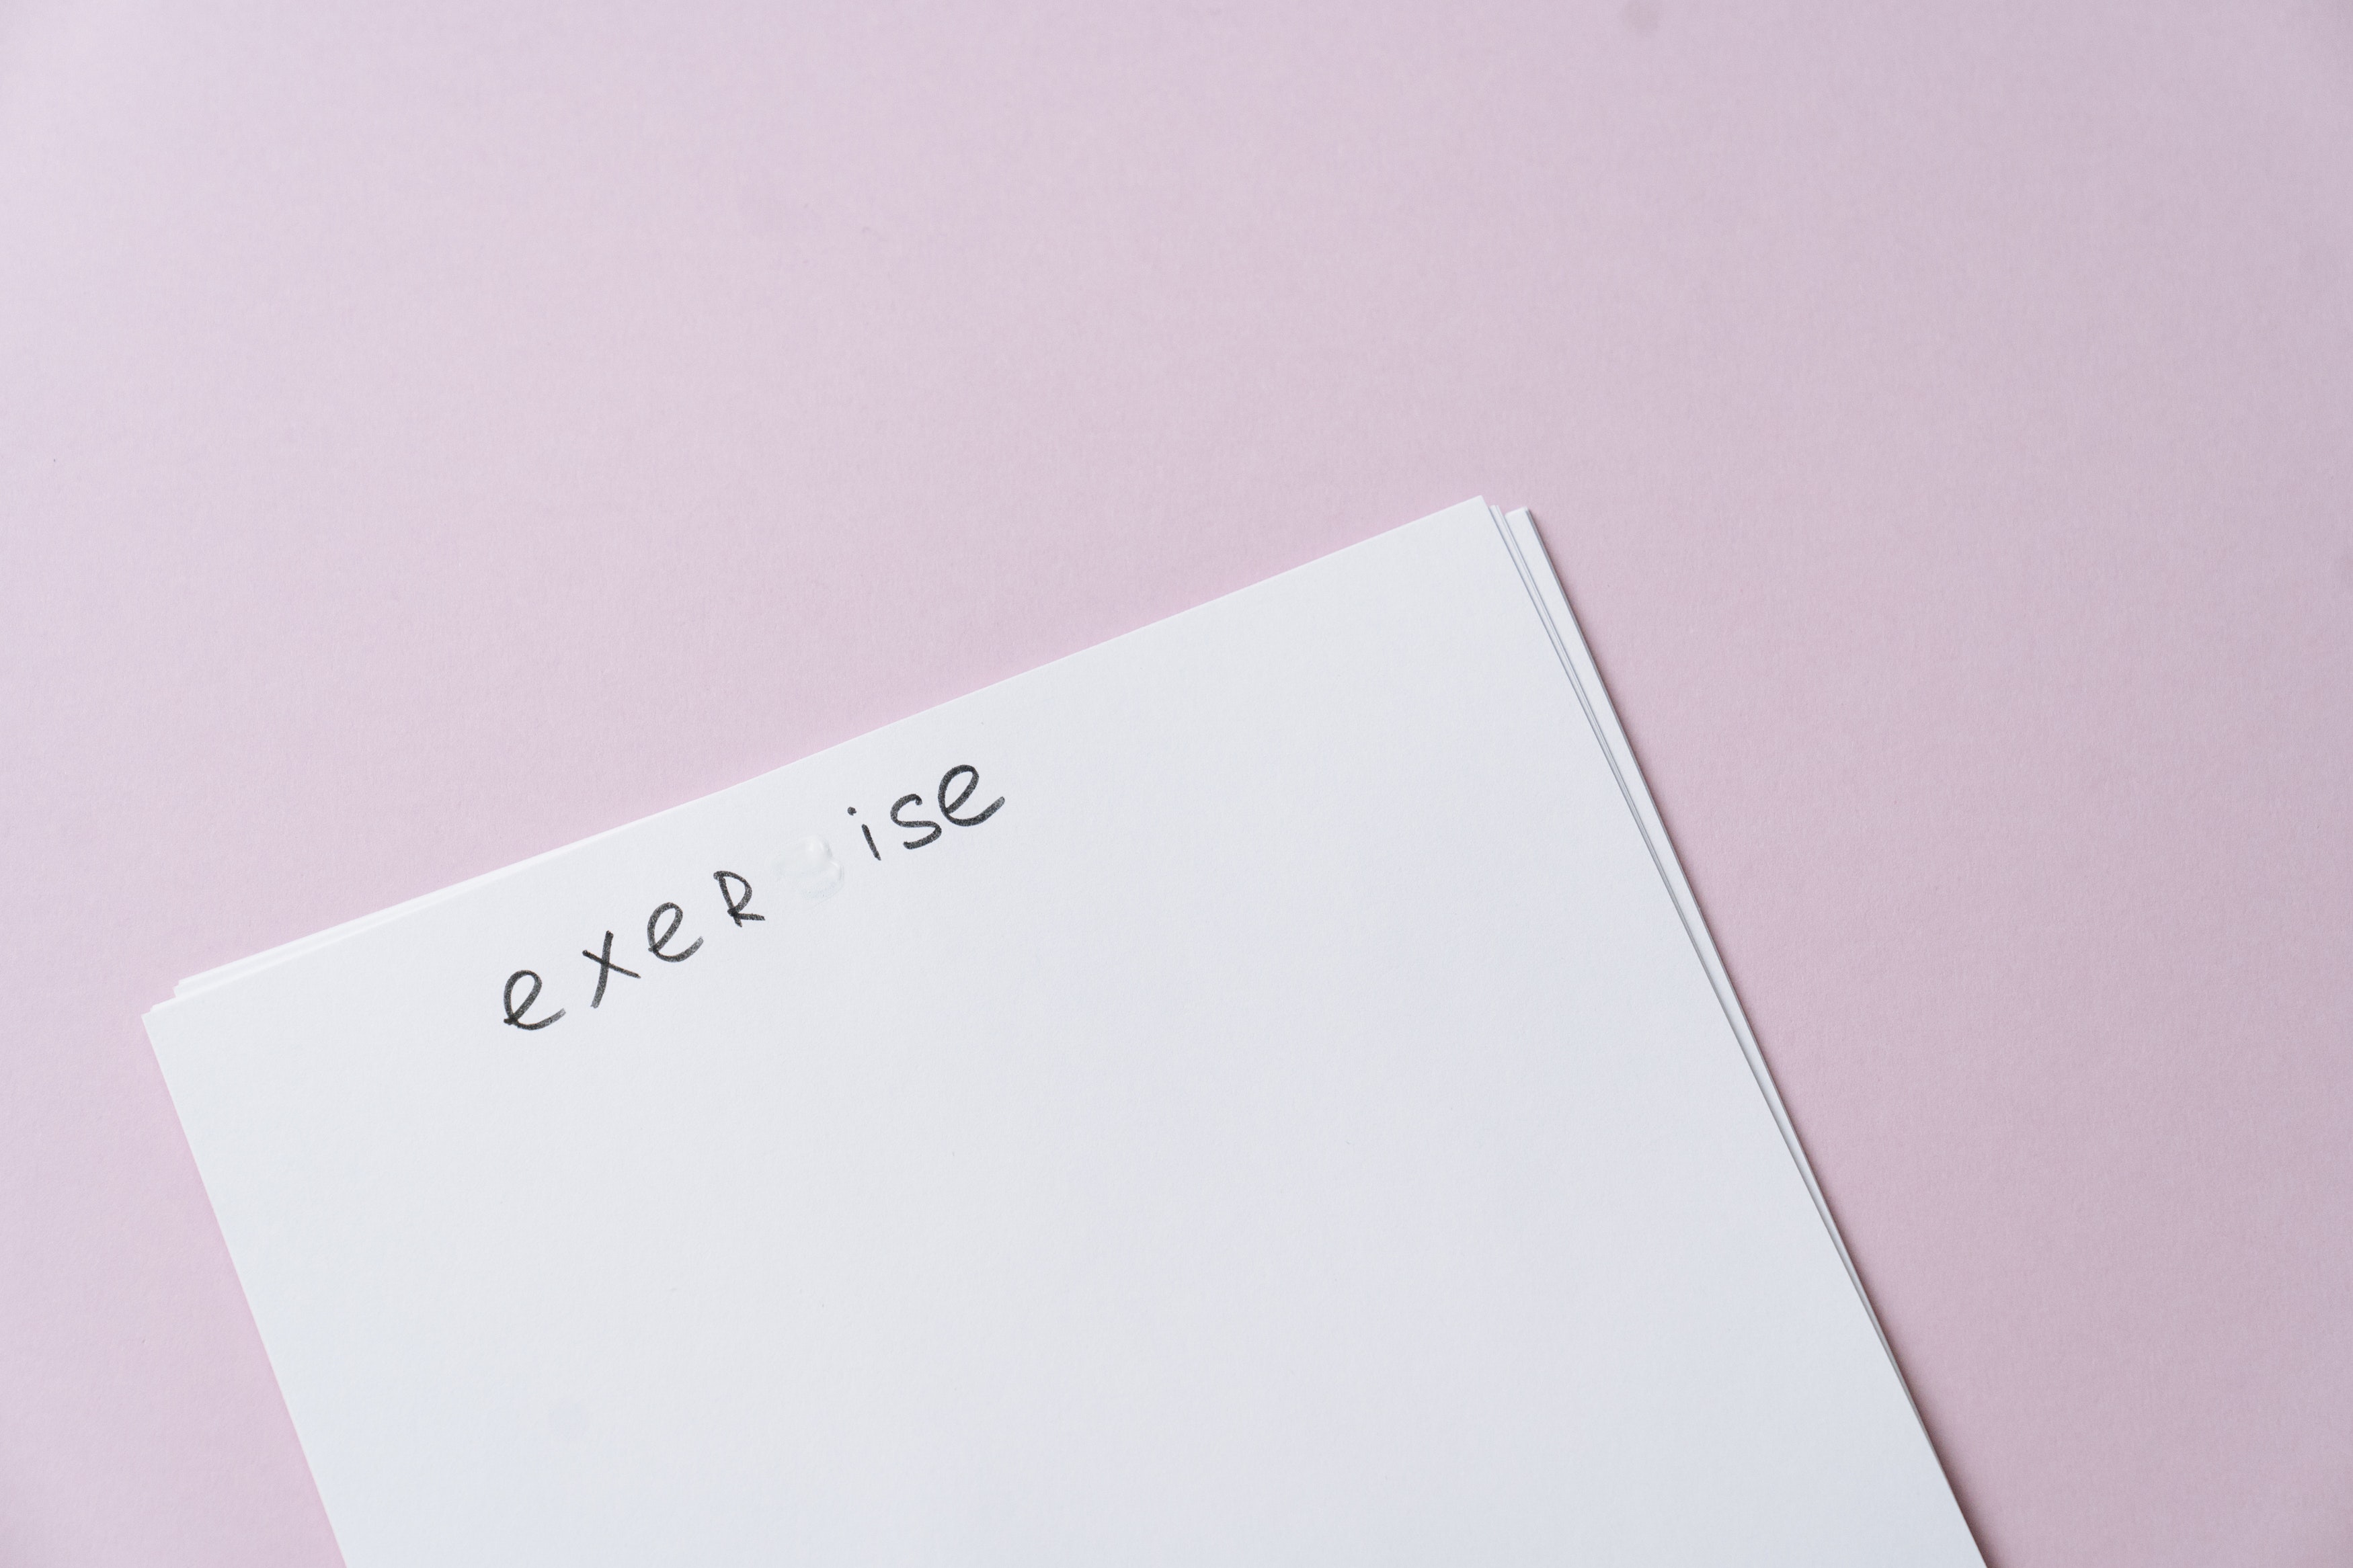 exeR ise